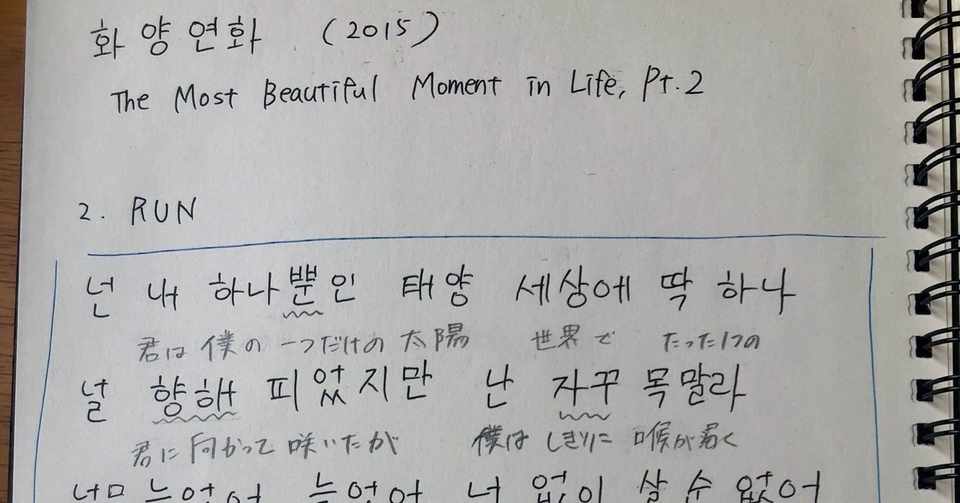 화양연화 (2015)
The Most Beautiful Moment in Life, Pt.2
2. RUN
넌 내 하나뿐인 태양 세상에 딱 하나
君は僕の一つだけの太陽 世界で たった1つの
널 향해 피었지만 난 자꾸 목말라
君に向かって咲いたが 僕はしきりに喉が渇く
너무 늦었어 늦었어 너 없이 살 수 없어